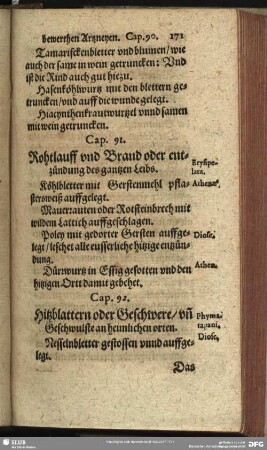 bewerthen Artzneyen. Cap. 90. 171
Tamarisckenbletter vnd blumen/ wie
auch der same in wein getruncken: Vnd
ist die Rind auch gut hiezu.
Hasenköhlwurtz mit den blettern ge-
truncken/ vnd auff die wunde gelegt.
Hiacynthenkrautwurtzel vnnd samen
mit wein getruncken.
Cap. 91.
Rohtlauff vnd Brand oder ent-
zündung des gantzen Leibs.
Erysipe-
lata.
Köhlbletter mit Gerstenmehl pfla-
stersweiß auffgelegt.
Athenæ.
Mauerrauten oder Rotsteinbrech mit
wildem Lattich auffgeschlagen.
Poley mit gedörter Gersten auffge-
legt/ leschet alle eusserliche hitzige entzün-
dung.
Diosc.
Dürrwurtz in Essig gesotten vnd den
hitzigen Ort damit gebehet.
Athen.
Cap. 92.
Hitzblattern oder Geschwere/ vn̄
Geschwulste an heimlichen orten.
Phyma-
ta, pani.
Nesselnbletter gestossen vnnd auffge-
legt.
Diosc.
Das
SLUB
DFG